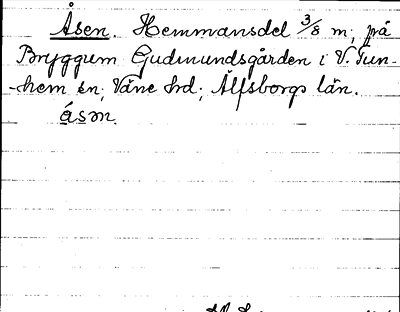 Åsen. Hemmansdel 3/8 m; på
Bryggum Gudmundsgården i V. Tun-
-hem sn; Väne hd; Älfsborgs län.
åsm.